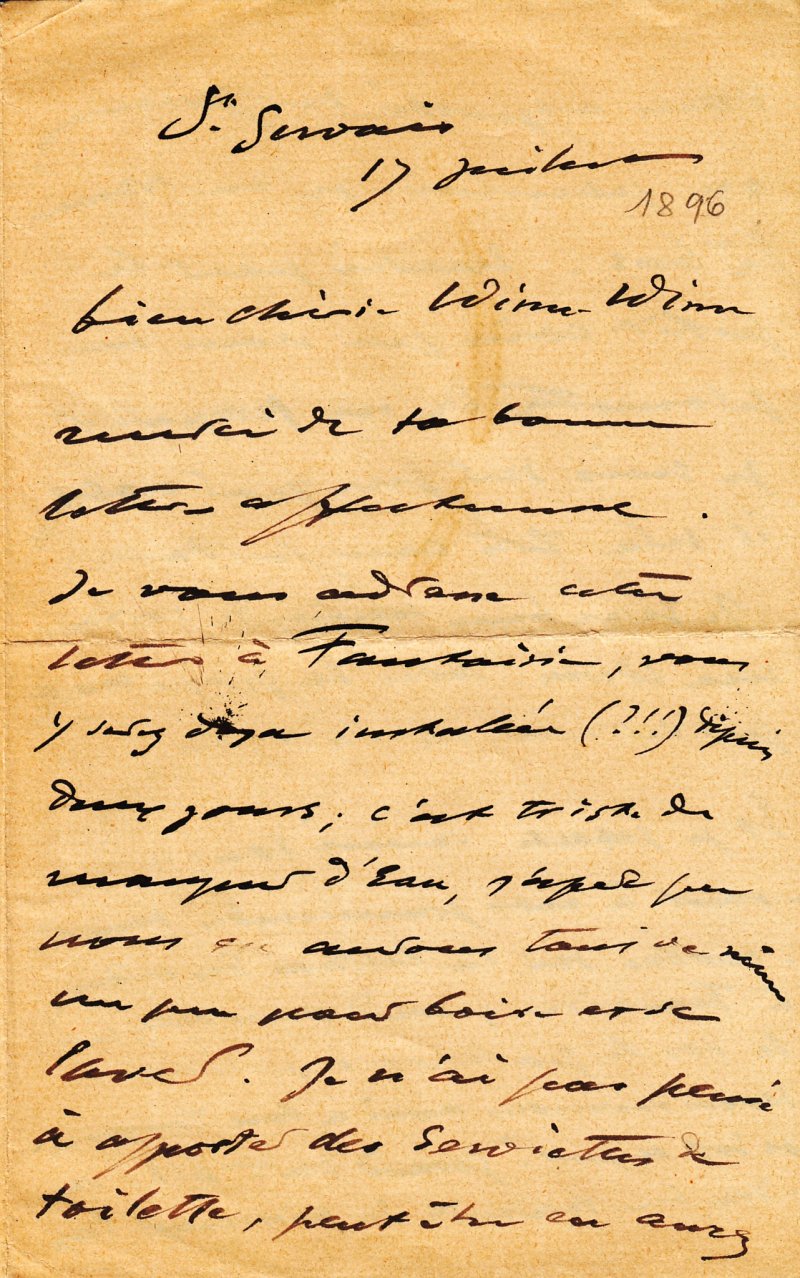 St. Gervais
17 juillet
1896
bien chérie Winn-Winn
merci de ta bonne
lettre affectueuse.
Je vous adresse cette
lettre à Fantaisie, vous
y serez déja installées (?!!) depuis
deux jours; c'est triste de
manquer d'Eau, j'espère que
nous en aurons tous de même
un peu pour boire et se
laver. Je n'ai pas pensé
à apporter des serviettes de
toilette, peut être en aurez